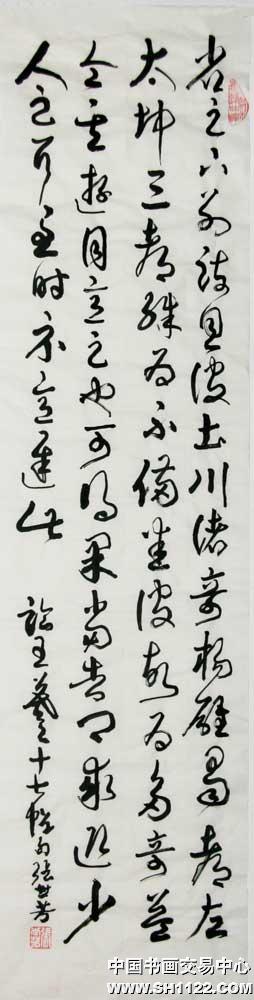 省足下别疏具彼土川諸奇楊雄蜀都左
太冲三都殊為不備悉彼故為多奇益
令其遊目意足也可得果當告卿求迎少
人足耳至时示意遲此
臨王羲之十七帖句張世芳
中国书画交易中心
www.SH1122.com